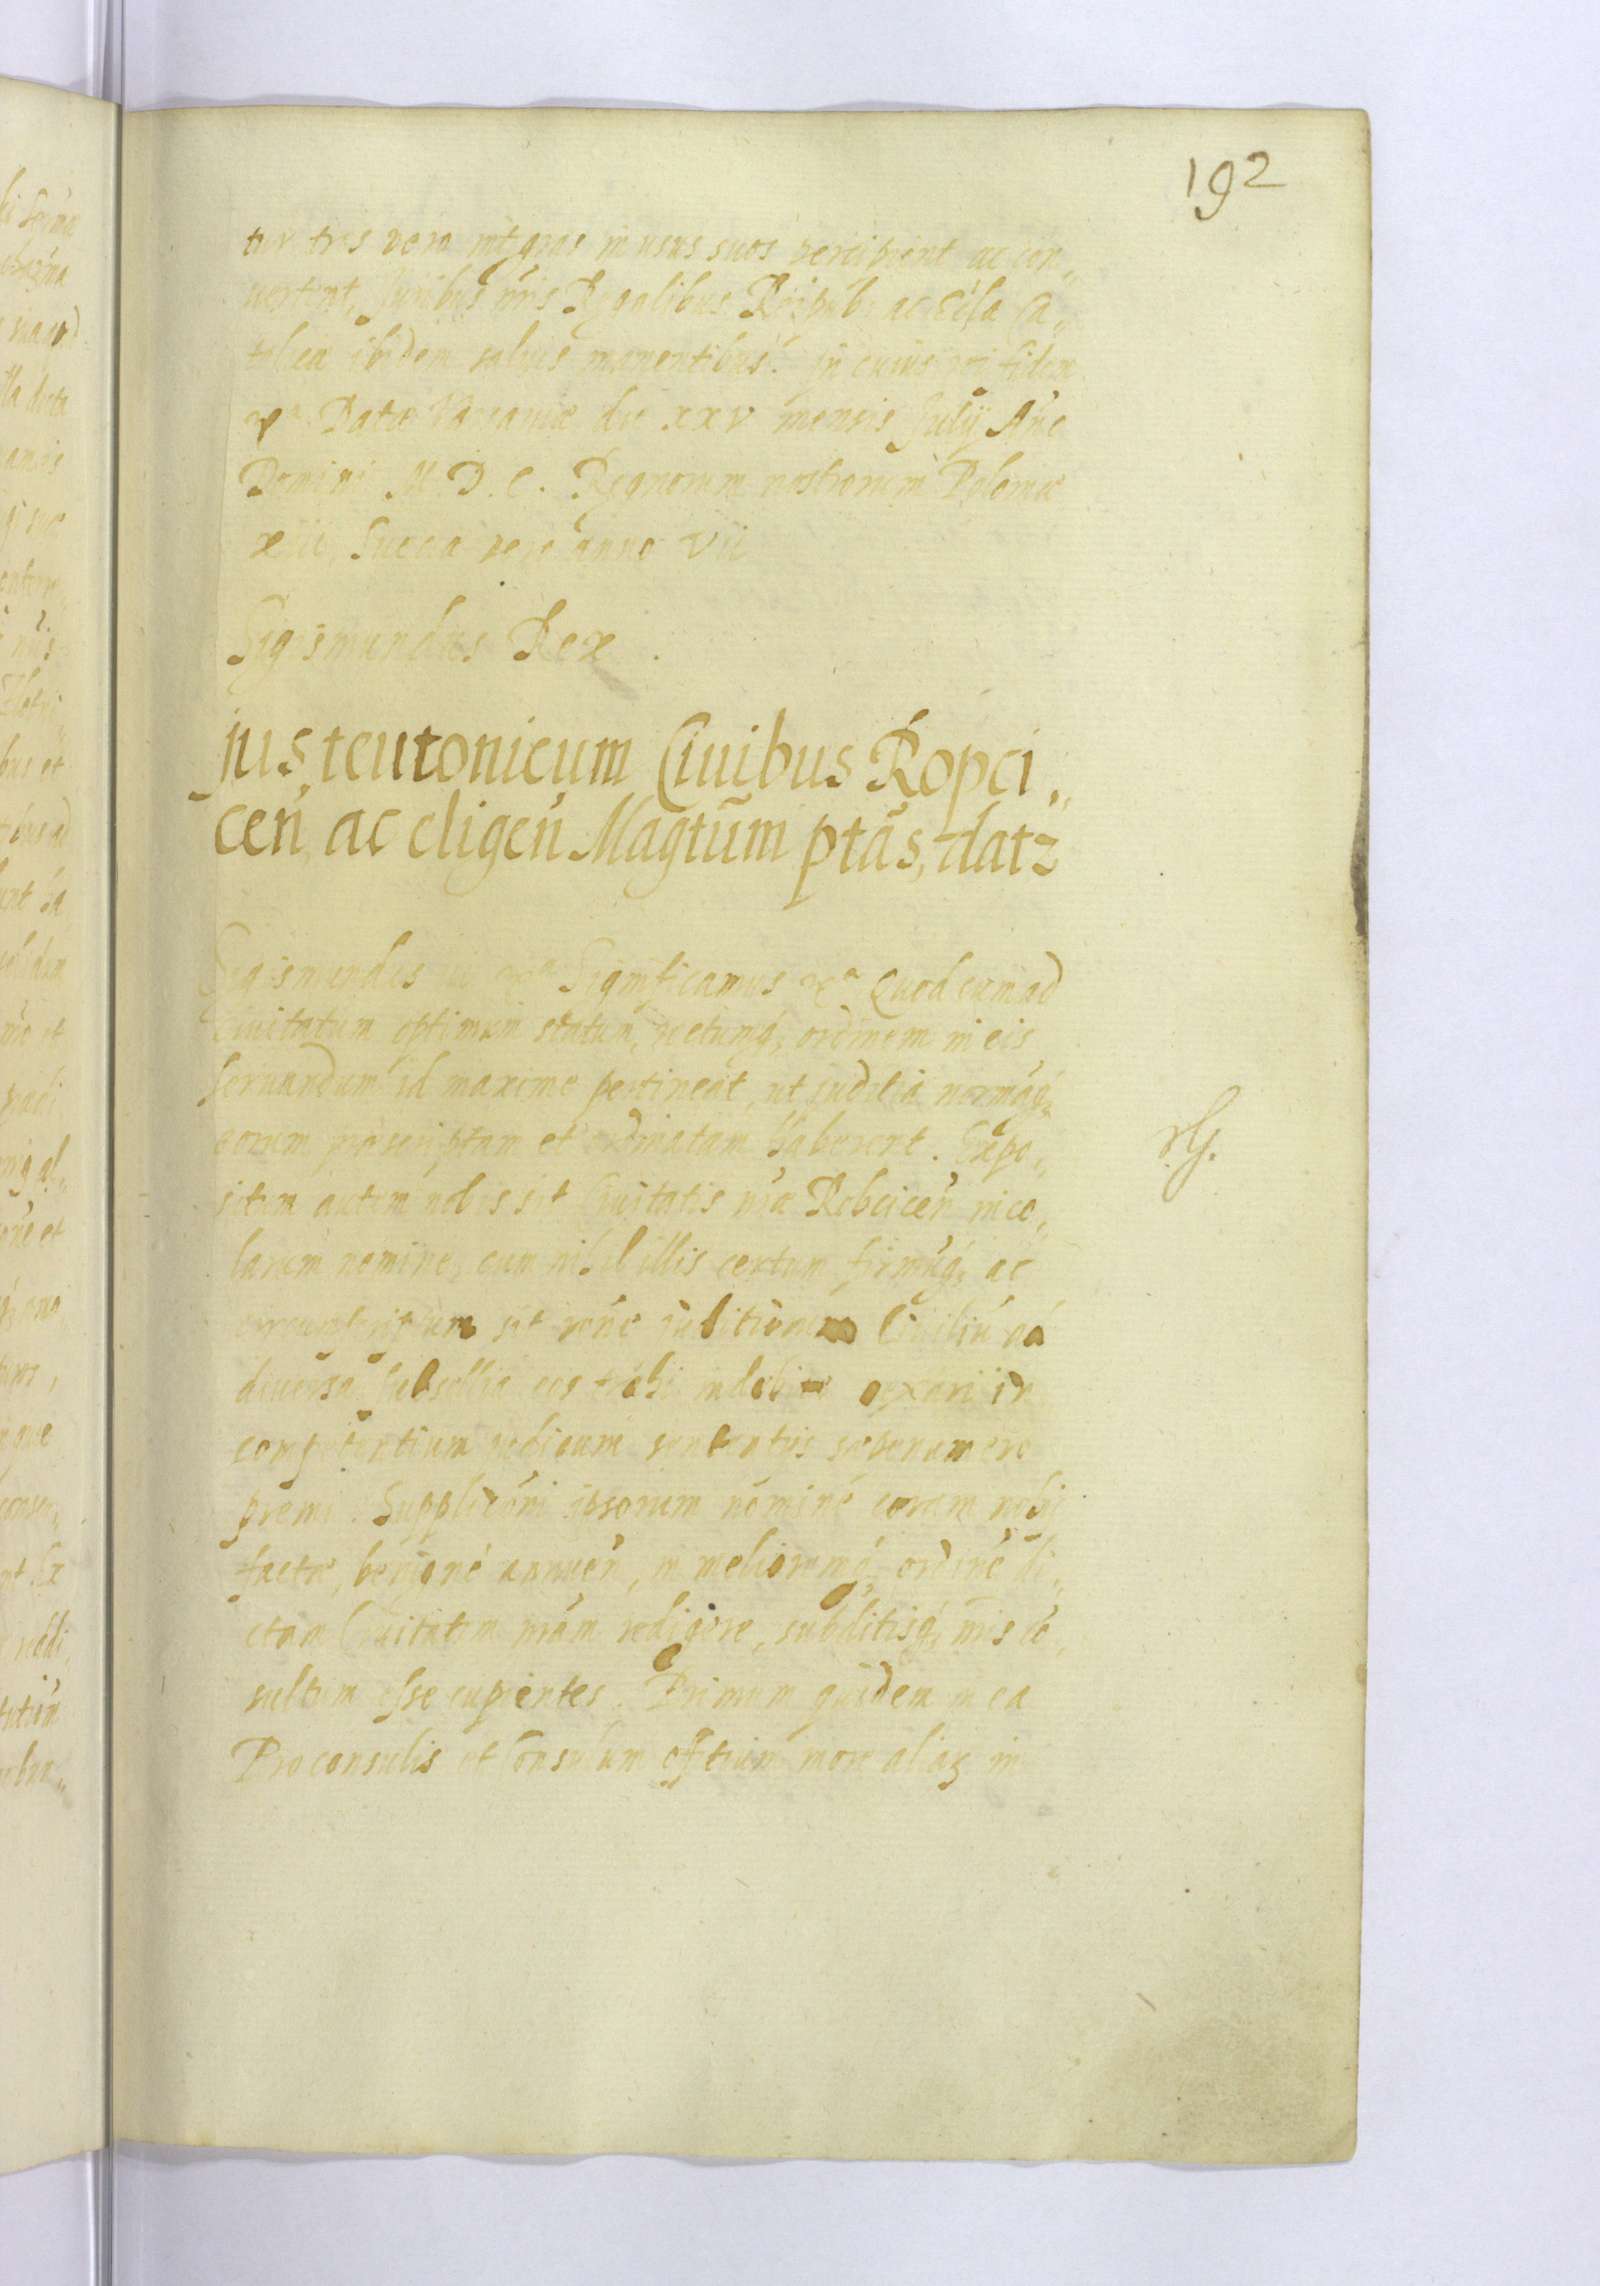 192
tur tres vero integras in usus suos percipient ac con„
vertent, Juribus nr̃is Regalibus Reipub: ac Ecc̃la Ca„
tolica ibidem salvis manentibus. In cuius rei fidem
Datæ Varsaviæ die XXV mensis Julij Año
Domini M.D.C. Regnorum nostrorum Poloniæ
xiii, Suecia vero anno vii
Sigismundus Rex.
jus teutonicum Ciuibus Ropci„
ceñ ac eligeñ Magtũm ptãs, datz
Sigismundus iii Significamus Quod cum ad
Ciuitatum optimum statum, rectumq; ordinem in eis
seruandum id maxime pertineat, ut judicia normãq;
eorum præscriptam et ordinatam haberent. Expo„
situm autem nobis sit Ciuitatis nr̃æ Robciceñ inco„
larum nomine, cum nihil illis certum firmũq; ac
circumscriptum sit rõne juditiorum Ciuiliũ ad
diuersa subsellia eos trahi indebite vexari in
competentium judicum sententiis sæpenumero
premi. Supplicõni ipsorum nomine coram nobis
factæ, benigne annueñ, in melioremq; ordinẽ di„
ctam Ciuitatem nr̃am redigere, subditisq; nr̃is cõ„
sultum esse cupientes. Primum quidem in ea
Proconsulis et Consulum offitium more aliaz in